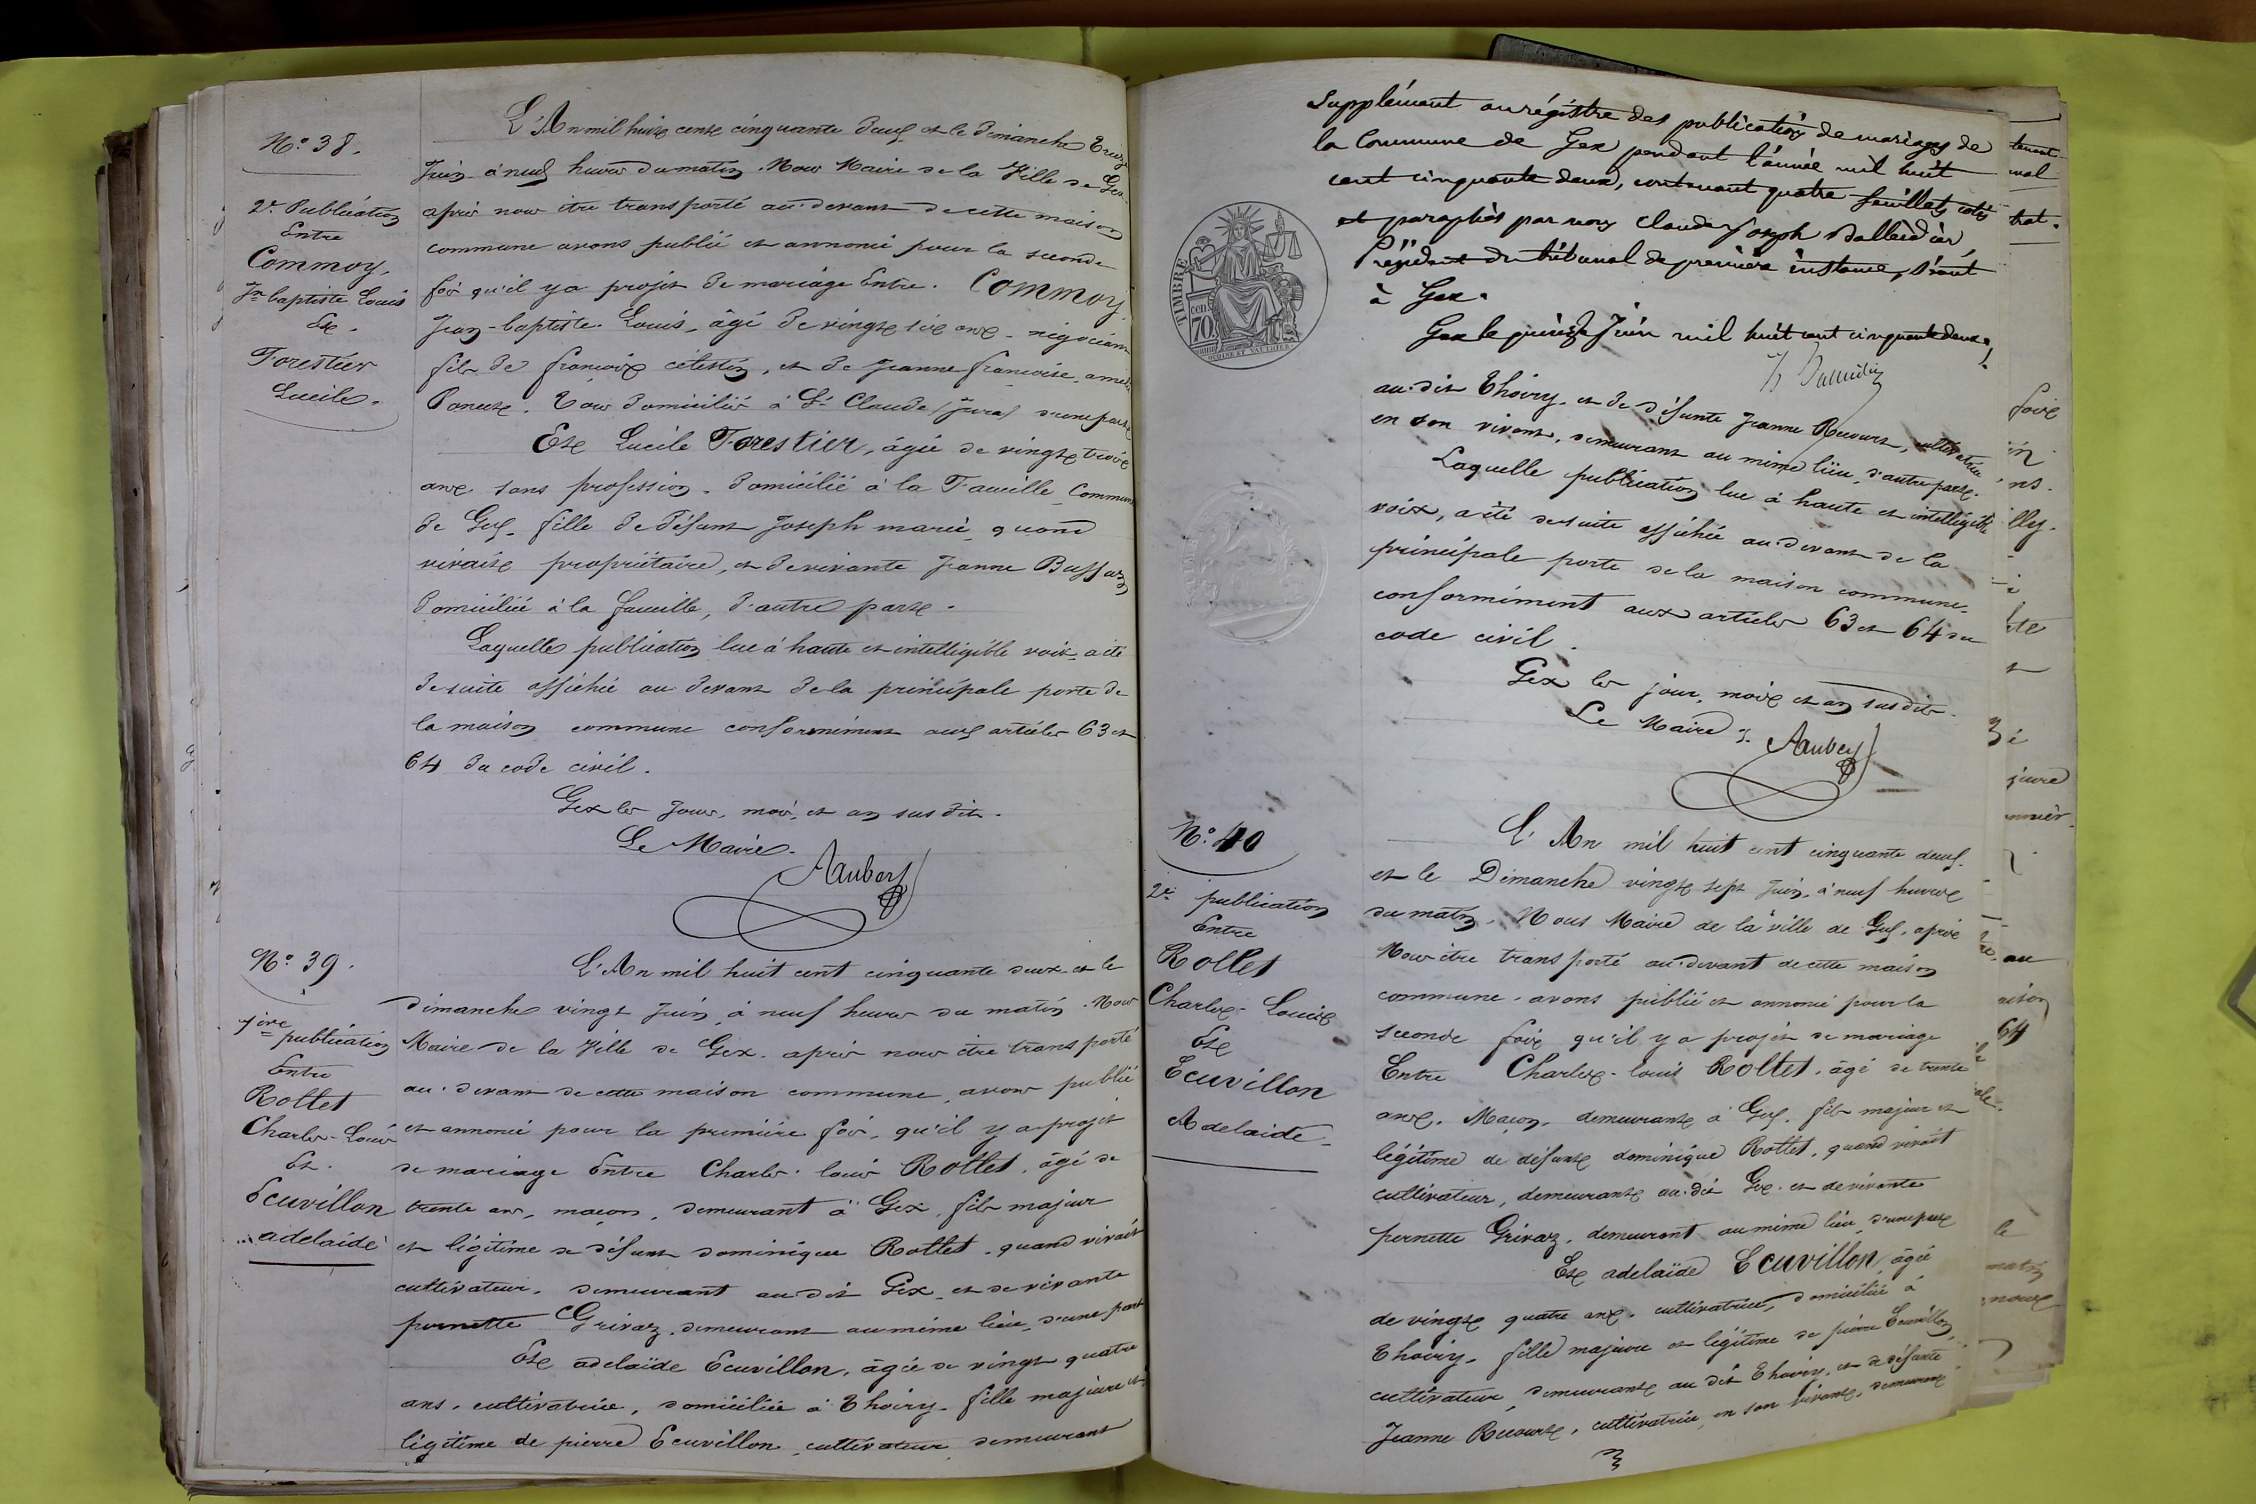 N.º 38.
2.e Publication
Entre
Commoy,
Jn baptiste Louis
Et.
Forestier
Lucile.
L'An mil huit cent cinquante deux et le dimanche treize
Juin à neuf heures du matin. Nous Maire de la Ville de Gex
après nous être transporté au-devant de cette maison
commune avons publié et annoncé pour la seconde
fois qu'il y a projet de mariage Entre. Commoy
Jean-baptiste Louis, âgé de vingt six ans négociant
fils de françois célestin, et de Jeanne françoise
Tous domiciliés à St Claude (Jura) d'une part
Et Lucile Forestier, âgée de vingt trois
ans sans profession. domiciliée à la Faucille, Commune
de Gex, fille de défunt Joseph marie, quand
vivait propriétaire, et de vivante Jeanne
domiciliée à la faucille, d'autre part.
Laquelle publication lue à haute et intelligible voix, a été
de suite affichée au devant de la principale porte de
la maison commune conformément aux articles 63 et
64 du code civil.
Gex les Jour, mois, et an susdits.
Le Maire.
Aubert
N.º 39.
1ère publication
Entre
Rottet
Charles-Louis
Et.
Ecuvillon
adelaide
L'An mil huit cent cinquante deux et le
dimanche vingt Juin, à neuf heures du matin. Nous
Maire de la Ville de Gex. après nous être transporté
au-devant de cette maison commune, avons publié
et annoncé pour la première fois, qu'il y a projet
de mariage Entre Charles-louis Rottet, âgé de
trente ans, maçon, demeurant à Gex, fils majeur
et légitime de défunt dominique Rottet, quand vivait
cultivateur, demeurant au dit Gex, et de vivante
pernette Grivaz, demeurant au même lieu, d'une part
Et adelaïde Ecuvillon, âgée de vingt quatre
ans, cultivatrice, domiciliée à Thoiry, fille majeure et
légitime de pierre Ecuvillon, cultivateur demeurant
Supplément au régistre des publications de mariages de
la Commune de Gex pendant l'année mil huit
cent cinquante deux, contenant quatre feuillets cotés
et paraphés par nous Claude Joseph
Président du tribunal de première instance, séant
à Gex.
Gex le quinze Juin mil huit cent cinquante deux,
TIMBRE
70
au-dit Thoiry, et de défunte Jeanne Recourt, cultivatrice
en son vivant, demeurant au même lieu, d'autre part.
Laquelle publication lue à haute et intelligible
voix, a été de suite affichée au-devant de la
principale porte de la maison commune,
conformément aux articles 63 et 64 du
code civil.
Gex les jour, mois et an susdits.
Le Maire.
Aubert
N.º 40
2e publication
Entre
Rottet
Charles-Louis
Et
Ecuvillon
Adelaide
L'An mil huit cent cinquante deux
et le Dimanche vingt sept Juin, à neuf heures
du matin, Nous Maire de la ville de Gex, après
Nous être transporté au-devant de cette maison
commune, avons publié et annoncé pour la
seconde fois qu'il y a projet de mariage
Entre Charles-louis Rottet, âgé de trente
ans, Maçon, demeurant à Gex, fils majeur et
légitime de défunt dominique Rottet, quand vivait
cultivateur, demeurant au-dit Gex, et de vivante
pernette Grivaz, demeurant au même lieu d'une part
Et adelaïde Ecuvillon, âgée
de vingt quatre ans, cultivatrice, domiciliée à
Thoiry, fille majeure et légitime de pierre Ecuvillon
cultivateur, demeurant au dit Thoiry, et de défunte
Jeanne Recourt, cultivatrice, en son vivant, demeurant